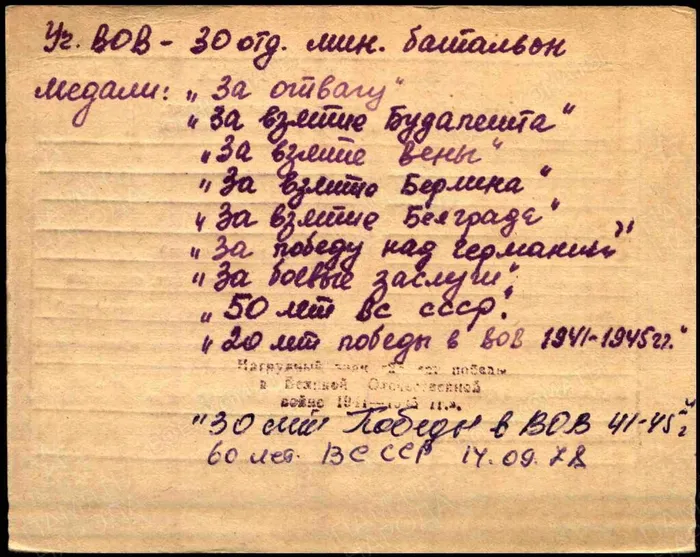 Уч. ВОВ - 30 отд. мин. батальон
медали: „За отвагу"
„За взятие Будапешта"
„За взятие Вены"
„За взятие Берлина"
„За взятие Белграде"
„За победу над германией"
„За боевые заслуги"
„50 лет ВС СССР."
„20 лет победы в ВОВ 1941-1945 гг."
Нагрудный знак лет победы
в Великой Отечественной
войне гг.».
"30 лет Победы в ВОВ 41-45 г"
60 лет. ВС ССР 14.09.78